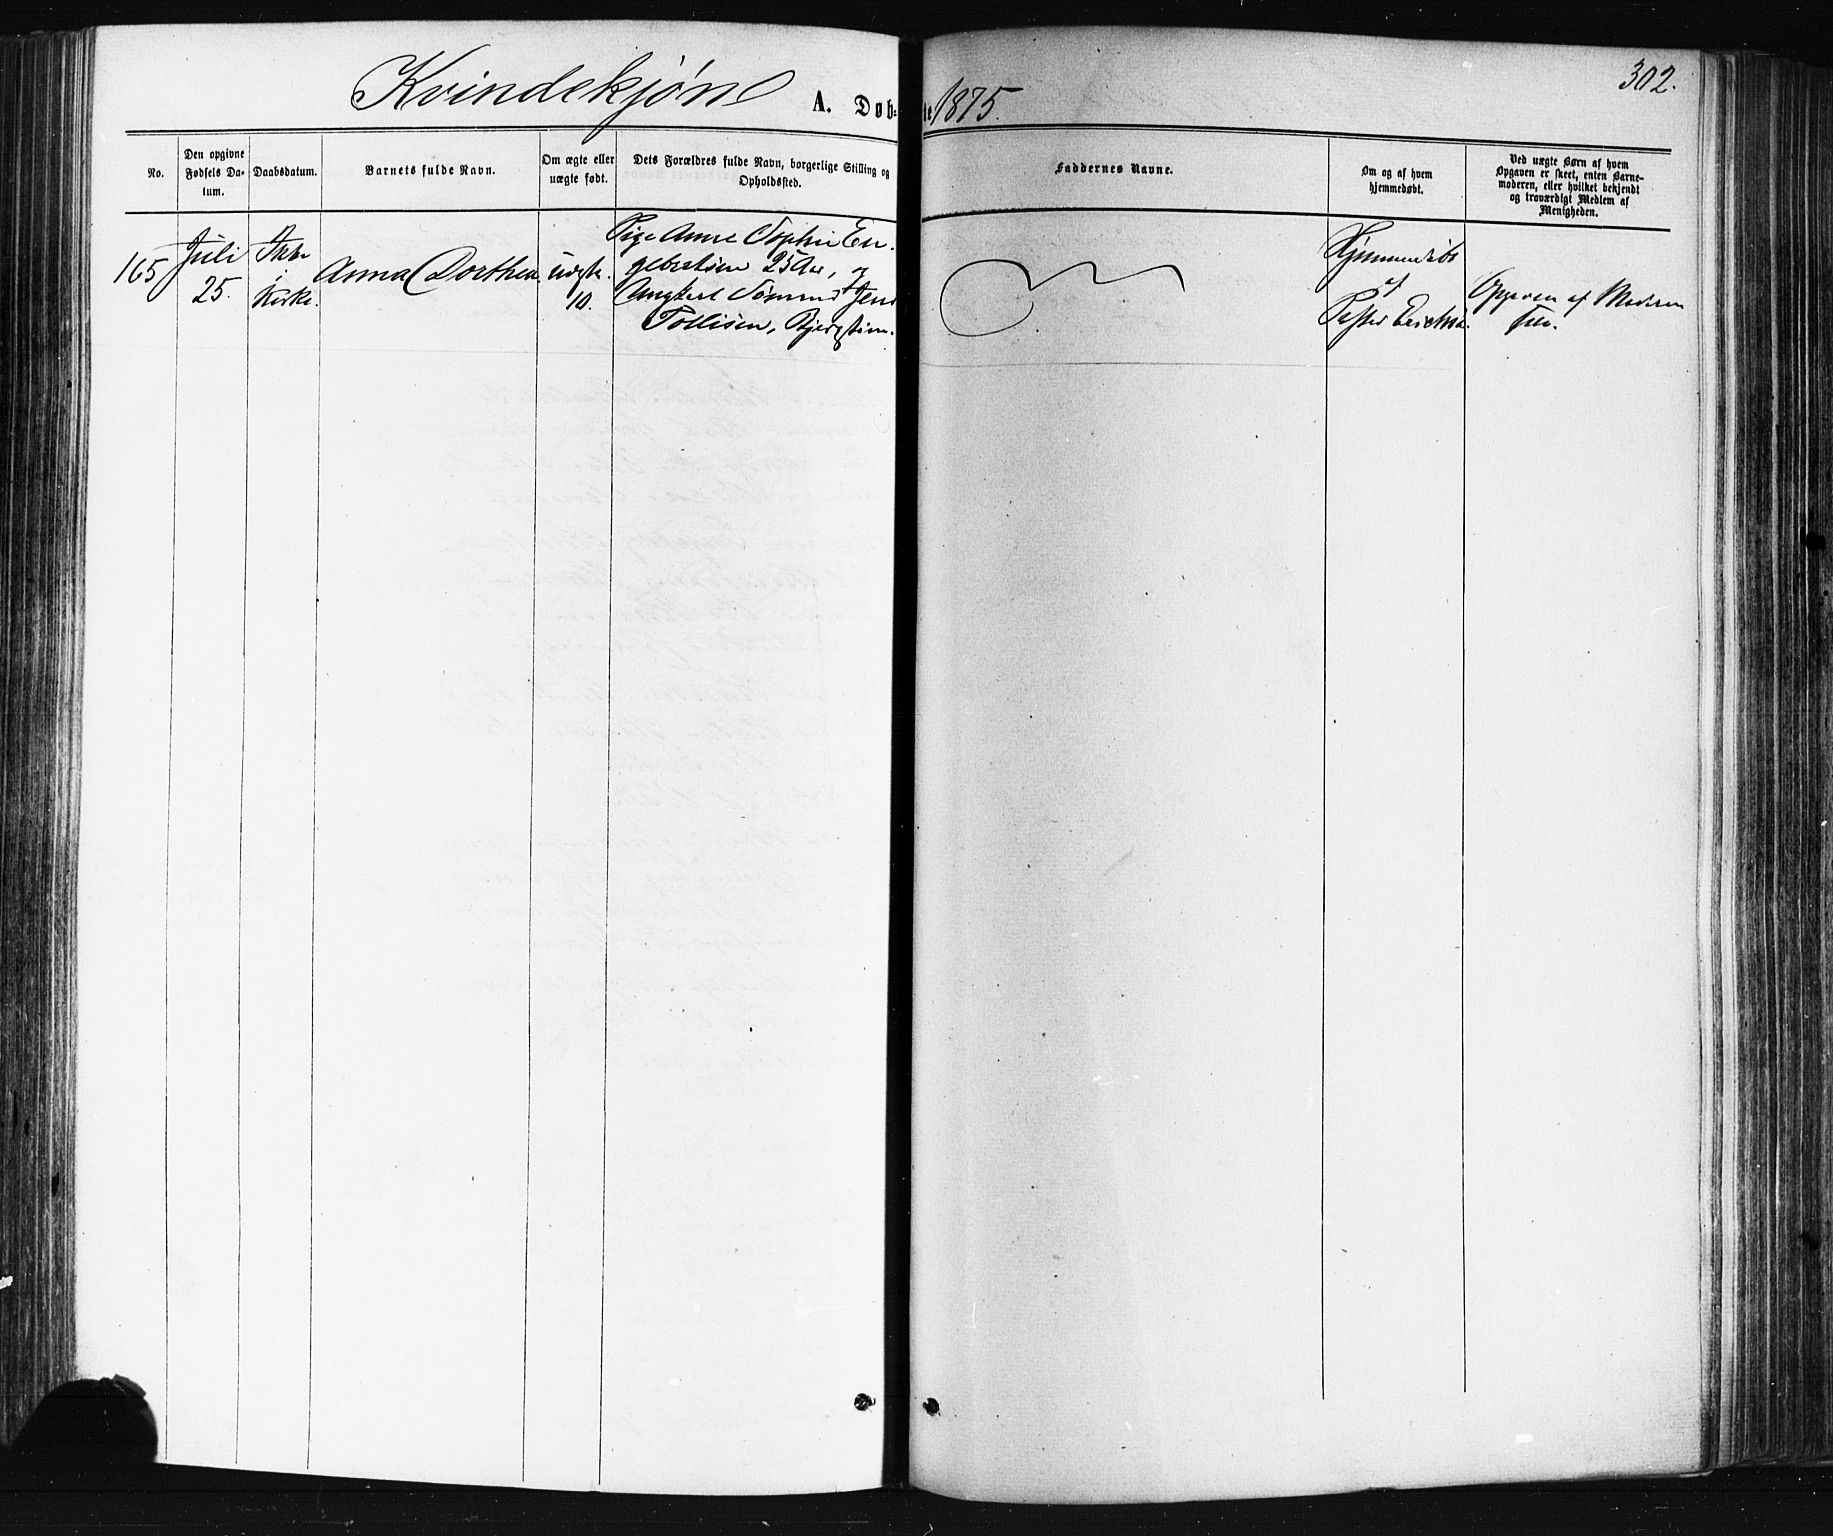 Kvindekjøn A. Døb=te 1875.
302.
No.
Den opgivne Fødsels Da-tum.
Daabsdatum.
Barnets fulde Navn.
Om ægte eller uægte født.
Dets Forældres fulde Navn, borgerlige Stilling og Opholdssted.
Faddernes Navne.
Om og af hvem hjemmedøbt.
Ved uægte Børn af hvem Opgaven er skeet, enten Barne-moderen, eller hvilket bekjendt og troværdigt Medlem af Menigheden.
165
Juli
25.
Ikke
i
Kirke.
Anna Dorthea
Uægte.
10.
Pige Anne Sophie En-
gebretsen 25 Aar, og
Ungkarl Sømand Jens
Tollisen,
Hjemmedøbt
af
Opgaven af Moderen
selv.